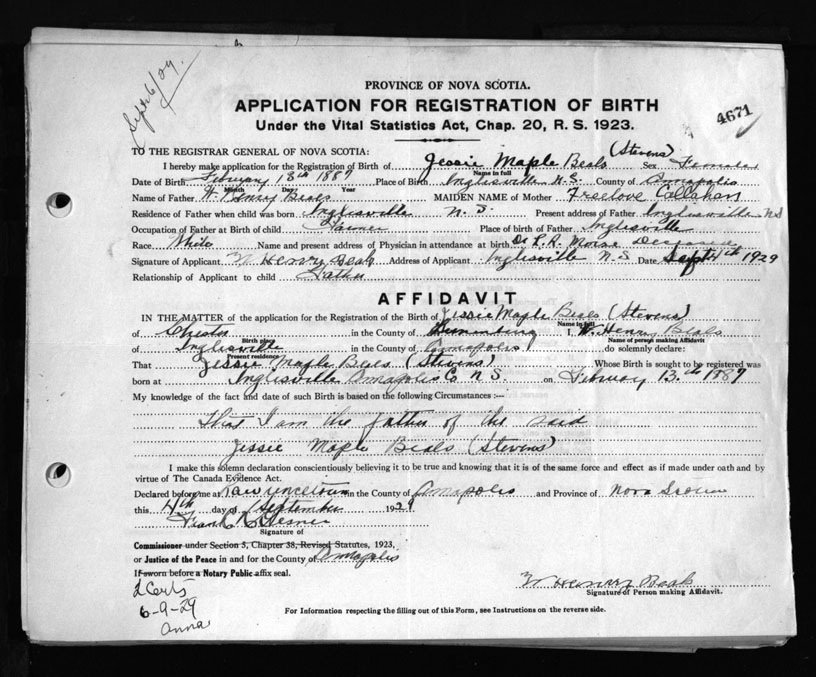 Sept 6/29.
PROVINCE OF NOVA SCOTIA.
APPLICATION FOR REGISTRATION OF BIRTH
4671
Under the Vital Statistics Act, Chap. 20, R. S. 1923.
TO THE REGISTRAR GENERAL OF NOVA SCOTIA:
I hereby make application for the Registration of Birth of Jessie Maple Beals (Stevens) Sex Female
Name in full
Date of Birth February 13th 1887 Place of Birth Inglisville N.S. County of Annapolis
Month Day Year
Name of Father W. Henry Beals MAIDEN NAME of Mother Freelove Callahan
Residence of Father when child was born Inglisville N. S. Present address of Father Inglisville N S
Occupation of Father at Birth of child Farmer Place of birth of Father Inglisville
Race White Name and present address of Physician in attendance at birth Dr L. R. Morse Deceased
Signature of Applicant W Henry Beals Address of Applicant Inglisville N. S Date Sept 4th 1929
Relationship of Applicant to child Father
AFFIDAVIT
IN THE MATTER of the application for the Registration of the Birth of Jessie Maple Beals (Stevens)
Name in full
of Chester in the County of Lunenburg I, W. Henry Beals
Birth place
Name of person making Affidavit
of Inglisville in the County of Annapolis do solemnly declare:
Present residence
That Jessie Maple Beals (Stevens) Whose Birth is sought to be registered was
born at Inglisville Annapolis Co N. S. on February 13th 1887
My knowledge of the fact and date of such Birth is based on the following Circumstances :—
That I am the father of the said
Jessie Maple Beals (Stevens)
I make this solemn declaration conscientiously believing it to be true and knowing that it is of the same force and effect as if made under oath and by
virtue of The Canada Evidence Act.
Declared before me at Lawrencetown in the County of Annapolis and Province of Nova Scotia
this 4th day of September 1929
Frank
Signature of
Commissioner under Section 5, Chapter 38, Revised Statutes, 1923,
or Justice of the Peace in and for the County of Annapolis
If sworn before a Notary Public affix seal.
W Henry Beals
Signature of Person making Affidavit.
2 Certs
6-9-29
Anna
For Information respecting the filling out of this Form, see Instructions on the reverse side.